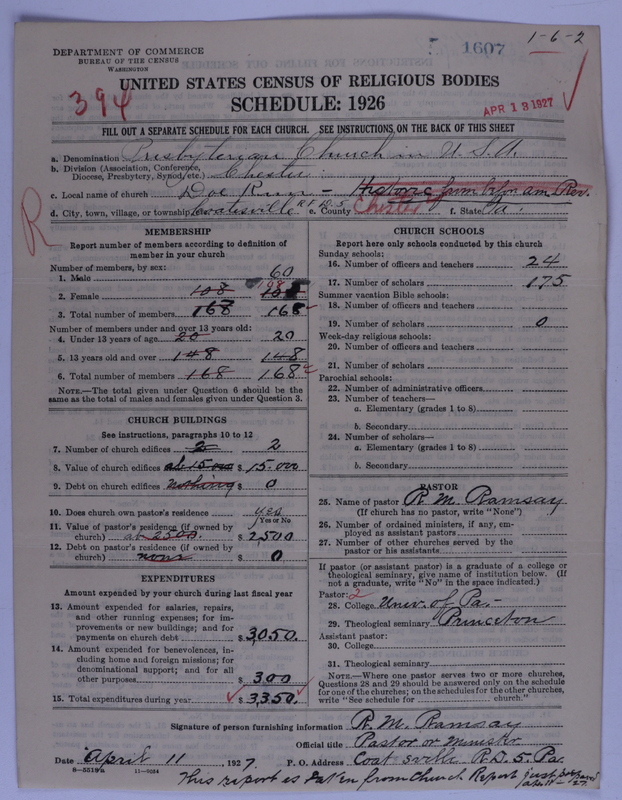 1607
1-6-2
DEPARTMENT OF COMMERCE
BUREAU OF THE CENSUS
WASHINGTON
UNITED STATES CENSUS OF RELIGIOUS BODIES
394
SCHEDULE: 1926
APR 13 1927
FILL OUT A SEPARATE SCHEDULE FOR EACH CHURCH. SEE INSTRUCTIONS ON THE BACK OF THIS SHEET
a. Denomination Presbyterian Church in U.S.A.
b. Division (Association, Conference, Diocese, Presbytery, Synod, etc.) Chester
c. Local name of church Doe Run - Historic from before am Rev.
d. City, town, village, or township Coatesville RFD.5 e. County Chester f. State Pa.
R
MEMBERSHIP
Report number of members according to definition of
member in your church
Number of members, by sex:
1. Male 60
2. Female 108 108
3. Total number of members 168 168
Number of members under and over 13 years old:
4. Under 13 years of age 20 20
5. 13 years old and over 148 148
6. Total number of members 168 168
NOTE.—The total given under Question 6 should be the
same as the total of males and females given under Question 3.
CHURCH BUILDINGS
See instructions, paragraphs 10 to 12
7. Number of church edifices 2 2
8. Value of church edifices ab 15.000 $ 15.000
9. Debt on church edifices nothing $ 0
10. Does church own pastor's residence yes
Yes or No
11. Value of pastor's residence (if owned by
church) ab 2500. $ 2500
12. Debt on pastor's residence (if owned by
church) none $ 0
EXPENDITURES
Amount expended by your church during last fiscal year
13. Amount expended for salaries, repairs,
and other running expenses; for im-
provements or new buildings; and for
payments on church debt $ 3,050.
14. Amount expended for benevolences, in-
cluding home and foreign missions; for
denominational support; and for all
other purposes $ 300
15. Total expenditures during year $ 3,350.
CHURCH SCHOOLS
Report here only schools conducted by this church
Sunday schools:
16. Number of officers and teachers 24
17. Number of scholars 175
Summer vacation Bible schools:
18. Number of officers and teachers
19. Number of scholars 0
Week-day religious schools:
20. Number of officers and teachers
21. Number of scholars
Parochial schools:
22. Number of administrative officers
23. Number of teachers—
a. Elementary (grades 1 to 8)
b. Secondary
24. Number of scholars—
a. Elementary (grades 1 to 8)
b. Secondary
PASTOR
25. Name of pastor R. M. Ramsay
(If church has no pastor, write "None")
26. Number of ordained ministers, if any, em-
ployed as assistant pastors
27. Number of other churches served by the
pastor or his assistants
If pastor (or assistant pastor) is a graduate of a college or
theological seminary, give name of institution below. (If
not a graduate, write "No" in the space indicated.)
Pastor: 2
28. College Univ. of Pa.
29. Theological seminary Princeton
Assistant pastor:
30. College
31. Theological seminary
NOTE.—Where one pastor serves two or more churches,
Questions 28 and 29 should be answered only on the schedule
for one of the churches; on the schedules for the other churches,
write "See schedule for church."
Signature of person furnishing information R. M. Ramsay
Official title Pastor or Minister
Date April 11 1927. P. O. Address Coatesville R.D. 5. Pa.
8-5518a 11-9024
This report is taken from Church Report just
April 27.